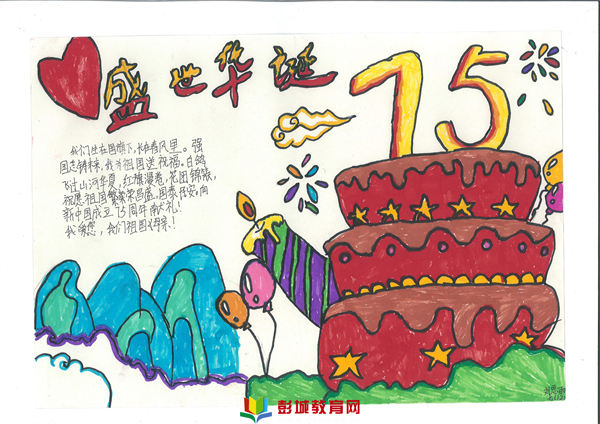 盛世华诞
75
我们生在国旗下,长在春风里。强
国志铸未来,我为祖国送祝福。白鸽
飞过山河华夏,红旗漫卷,花团锦簇,
祝愿祖国繁荣昌盛,国泰民安,向
新中国成立75周年献礼!
我爱您,我们祖国母亲!
彭城教育网